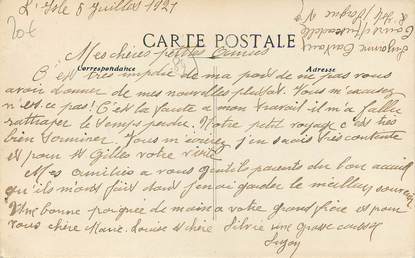 L'Isle 8 Juillet 1921
20f
CARTE POSTALE
Mes chères petites Amies
Correspondance
Adresse
C'est très impolie de ma part de ne pas vous
avoir donner de mes nouvelles plustot. Vous m'excusez
n'est-ce pas! C'est la faute a mon travail il m'a fallu
rattraper le temps perdu. Notre petit voyage c'est très
bien terminer. Vous m'écrirez j'en suis très contente
et pour St Gilles votre
Mes amitiés a vous gentils parents du bon accueil
qu'ils m'ont fait dont j'en ai garder le meilleur souvenir
Une bonne poignée de main a votre grand frère et pour
vous chère Marie-Louise et chère Silvie une grosse caresse
Suzon
Suzanne